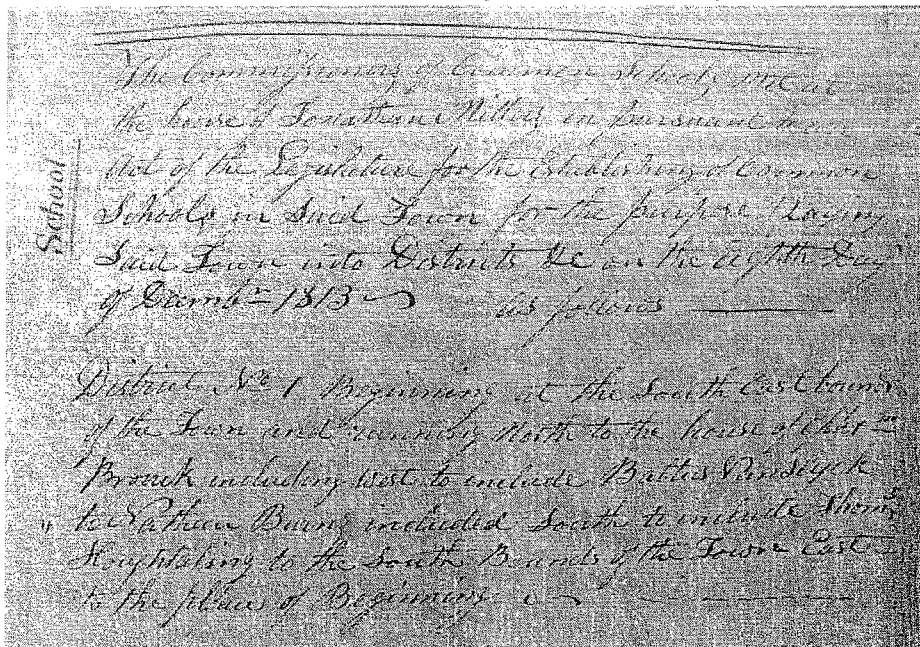 School
The Commissioners of Common Schools met at
the house of Jonathan Miller in pursuant to an
Act of the Legislature for the Establishing of Common
Schools in Said Town for the purpose of Laying
Said Town into Districts &c on the eighth Day
of Decembr 1813 as follows
District No 1 Beginning at the South East bounds
of the Town and running North to the house of
Bronk including west to include Battis Vanslyck
to Burns included South to include Thoms
Houghtaling to the South Bounds of the Town East
to the place of Beginning